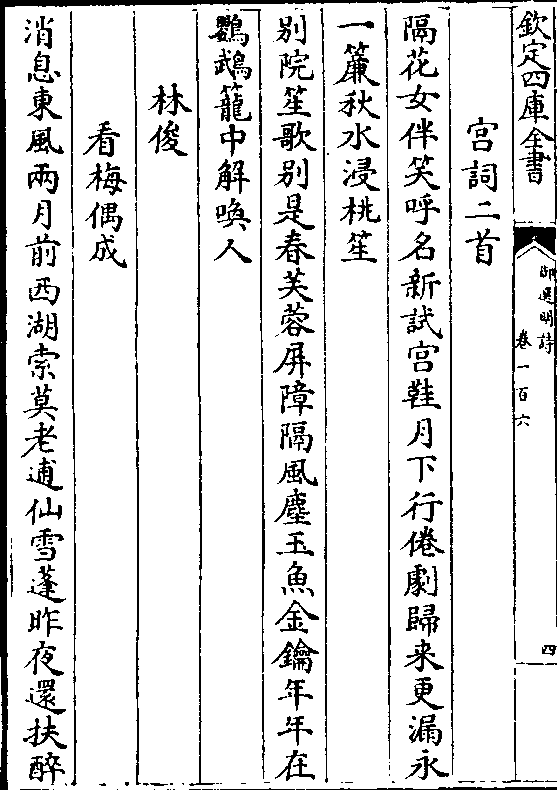 欽定四庫全書
御選明詩
卷一百六
四
宮詞二首
隔花女伴笑呼名新試宮鞋月下行倦劇歸来更漏永
一簾秋水浸桃笙
別院笙歌別是春芙蓉屏障隔風塵玉魚金鑰年年在
鸚鵡籠中解喚人
林俊
看梅偶成
消息東風兩月前西湖索莫老逋仙雪蓬昨夜還扶醉